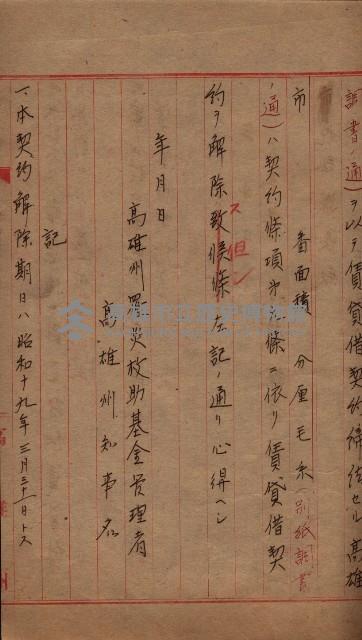 調書ノ通)ヲ以テ賃貸借契約締結セル高雄
市　　　番面積　分厘毛糸(別紙調書
ノ通)ハ契約條項第　條ニ依リ賃貸借契
約ヲ解除致候條左記ノ通リ心得ベシ
ス但シ
年月日
高雄州罹災救助基金管理者
高雄州知事名
記
一、本契約解除期日ハ昭和十九年三月三十一日トス